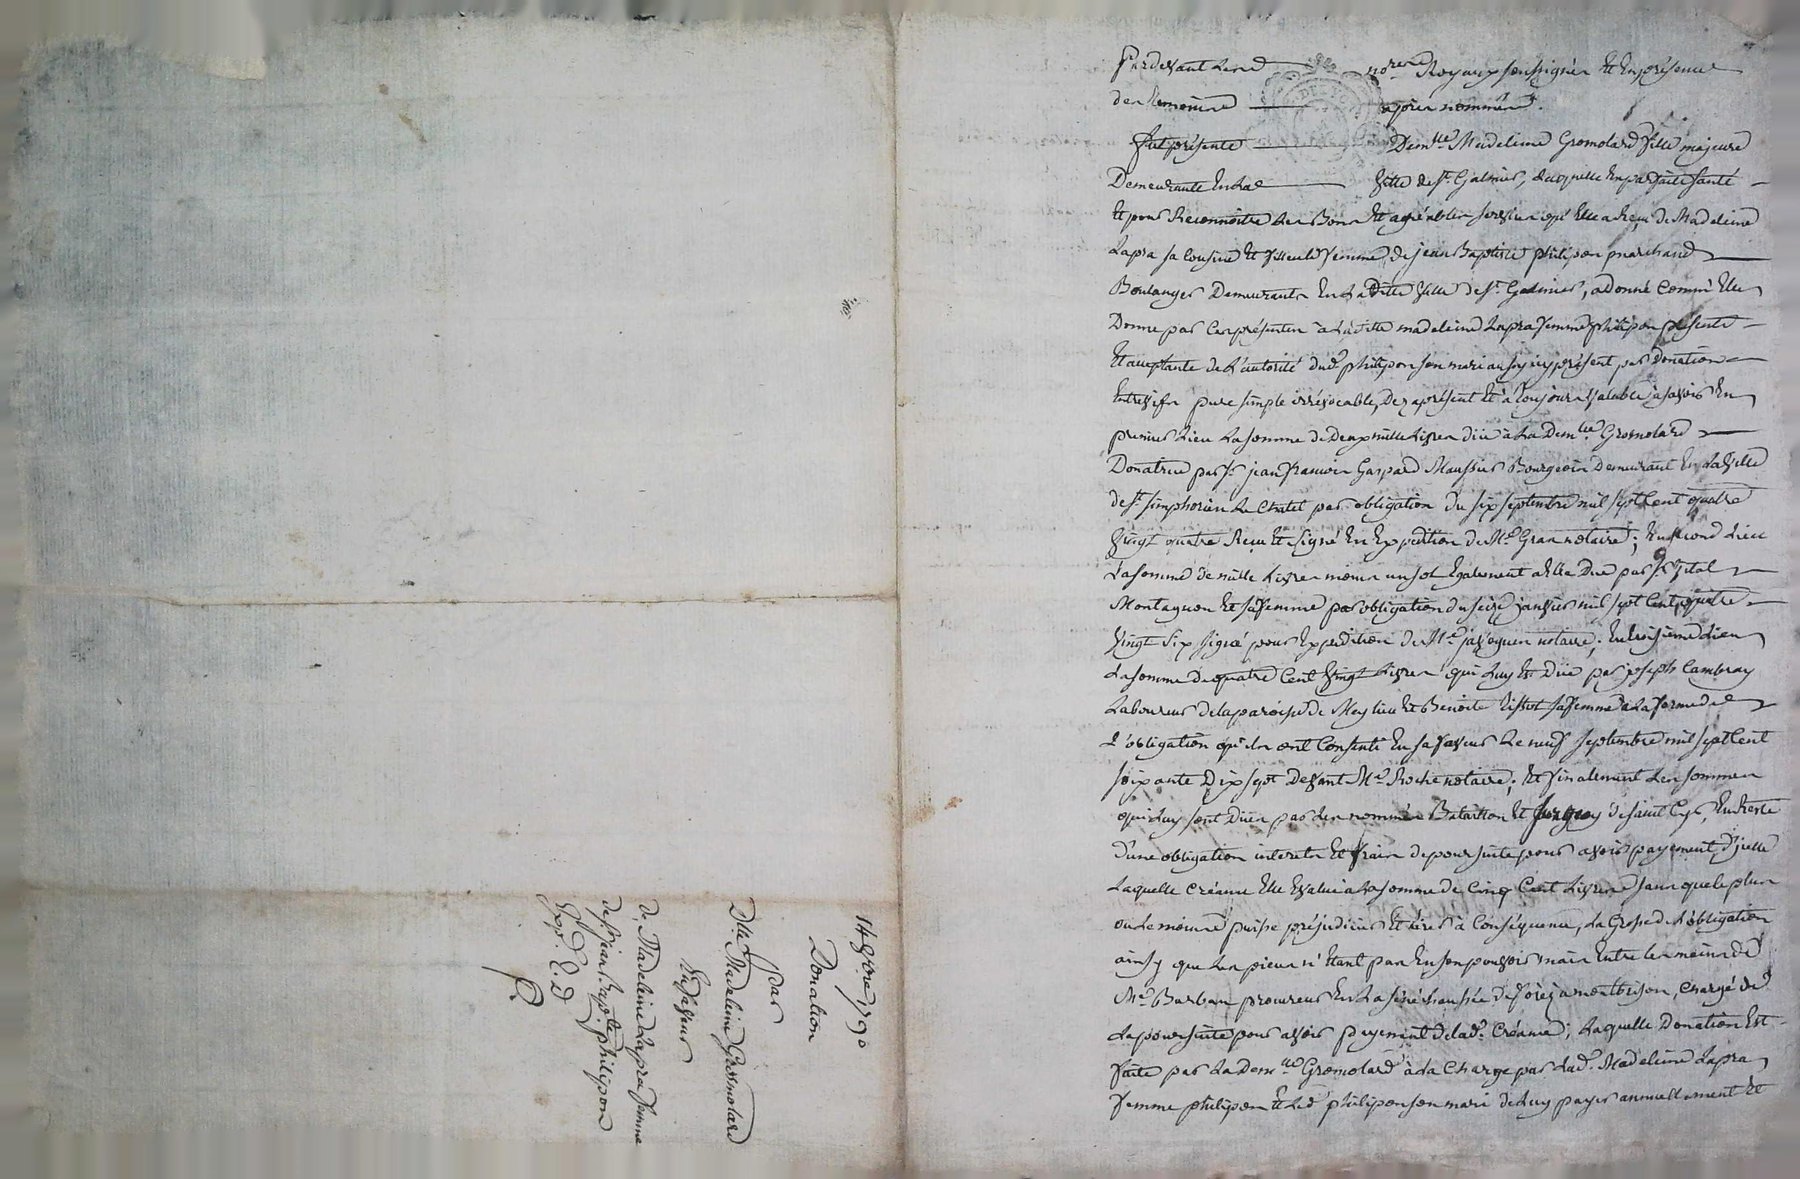 14 9bre 1790
Donation
par
Dlle Madeleine Gromolard
En faveur
de Madeleine Lapra femme
de Sr jean Bapte philipon
Exp. E. D
Pardevant Les nores Royaux soussignés Et En présence
des Temoins après nommés.
fut présente Demlle Madeleine Gromolard fille majeure
Demeurante En La ville de St Galmier, Laquelle En parfaite santé
Et pour Reconnoitre Les Bons Et agréables services qu'Elle a Reçu de Madeleine
Lapra sa Cousine Et filleule femme de jean Baptiste philipon marchand
Boulanger Demeurants En La Ditte ville de St Galmier, a donné Comme Elle
Donne par Ces présentes à La ditte madeleine Lapra femme philipon présente
Et acceptante de L'autorité dud. philipon son mari aussy icy présent, par Donation
Entrevifs pure simple irrévocable, Dez a présent Et à toujours valable, à savoir En
premier Lieu La somme de Deux mille Livres düe à La Demlle Gromolard
Donatrice par Sr jean francois Gaspard Maussier Bourgeois Demeurant En La ville
de St simphorien Le Chatel par obligation du six septembre mil sept Cent quatre
vingt quatre Reçu Et signé En Expedition de Me Gran notaire; En second Lieu
La somme de mille Livres moins un sol Egalement a Elle Due par Sr vital
Montagnon Et sa femme par obligation du seize janvier mil sept Cent quatre
vingt six signé pour Expedition de Me javoguer notaire; En troisieme Lieu
La somme de quatre Cent vingt Livres qui Luy Est Düe par joseph Cambray
Laboureur de la paroisse de Meylieu Et Benoite Tissot sa femme à La forme de
L'obligation qu'ils ont Consenti En sa faveur Le neuf septembre mil sept Cent
soixante Dix sept Devant Me Roche notaire; Et finalement Les sommes
qui Luy sont Dües par Les nommés Bataillon Et de saint Cyr, En Reste
D'une obligation interets Et frais de poursuite pour avoir payement d'jcelle
Laquelle Créance Elle Evalue à La somme de Cinq Cent Livres sans que le plus
ou Le moins puisse préjudicier Et tirer à Conséquence, La Grosse de L'obligation
ainsy que Les pieces n'Etant pas En son pouvoir mais Entre les mains de
Me Barban procureur En La sénéchaussée de forez à montbrison, Chargé de
La poursuite pour avoir payement de lad. Créance; Laquelle Donation Est
faite par La Demlle Gromolard à La Charge par Lad. Madeleine Lapra
femme philipon Et Led. philipon son mari de Luy payer annuellement Et